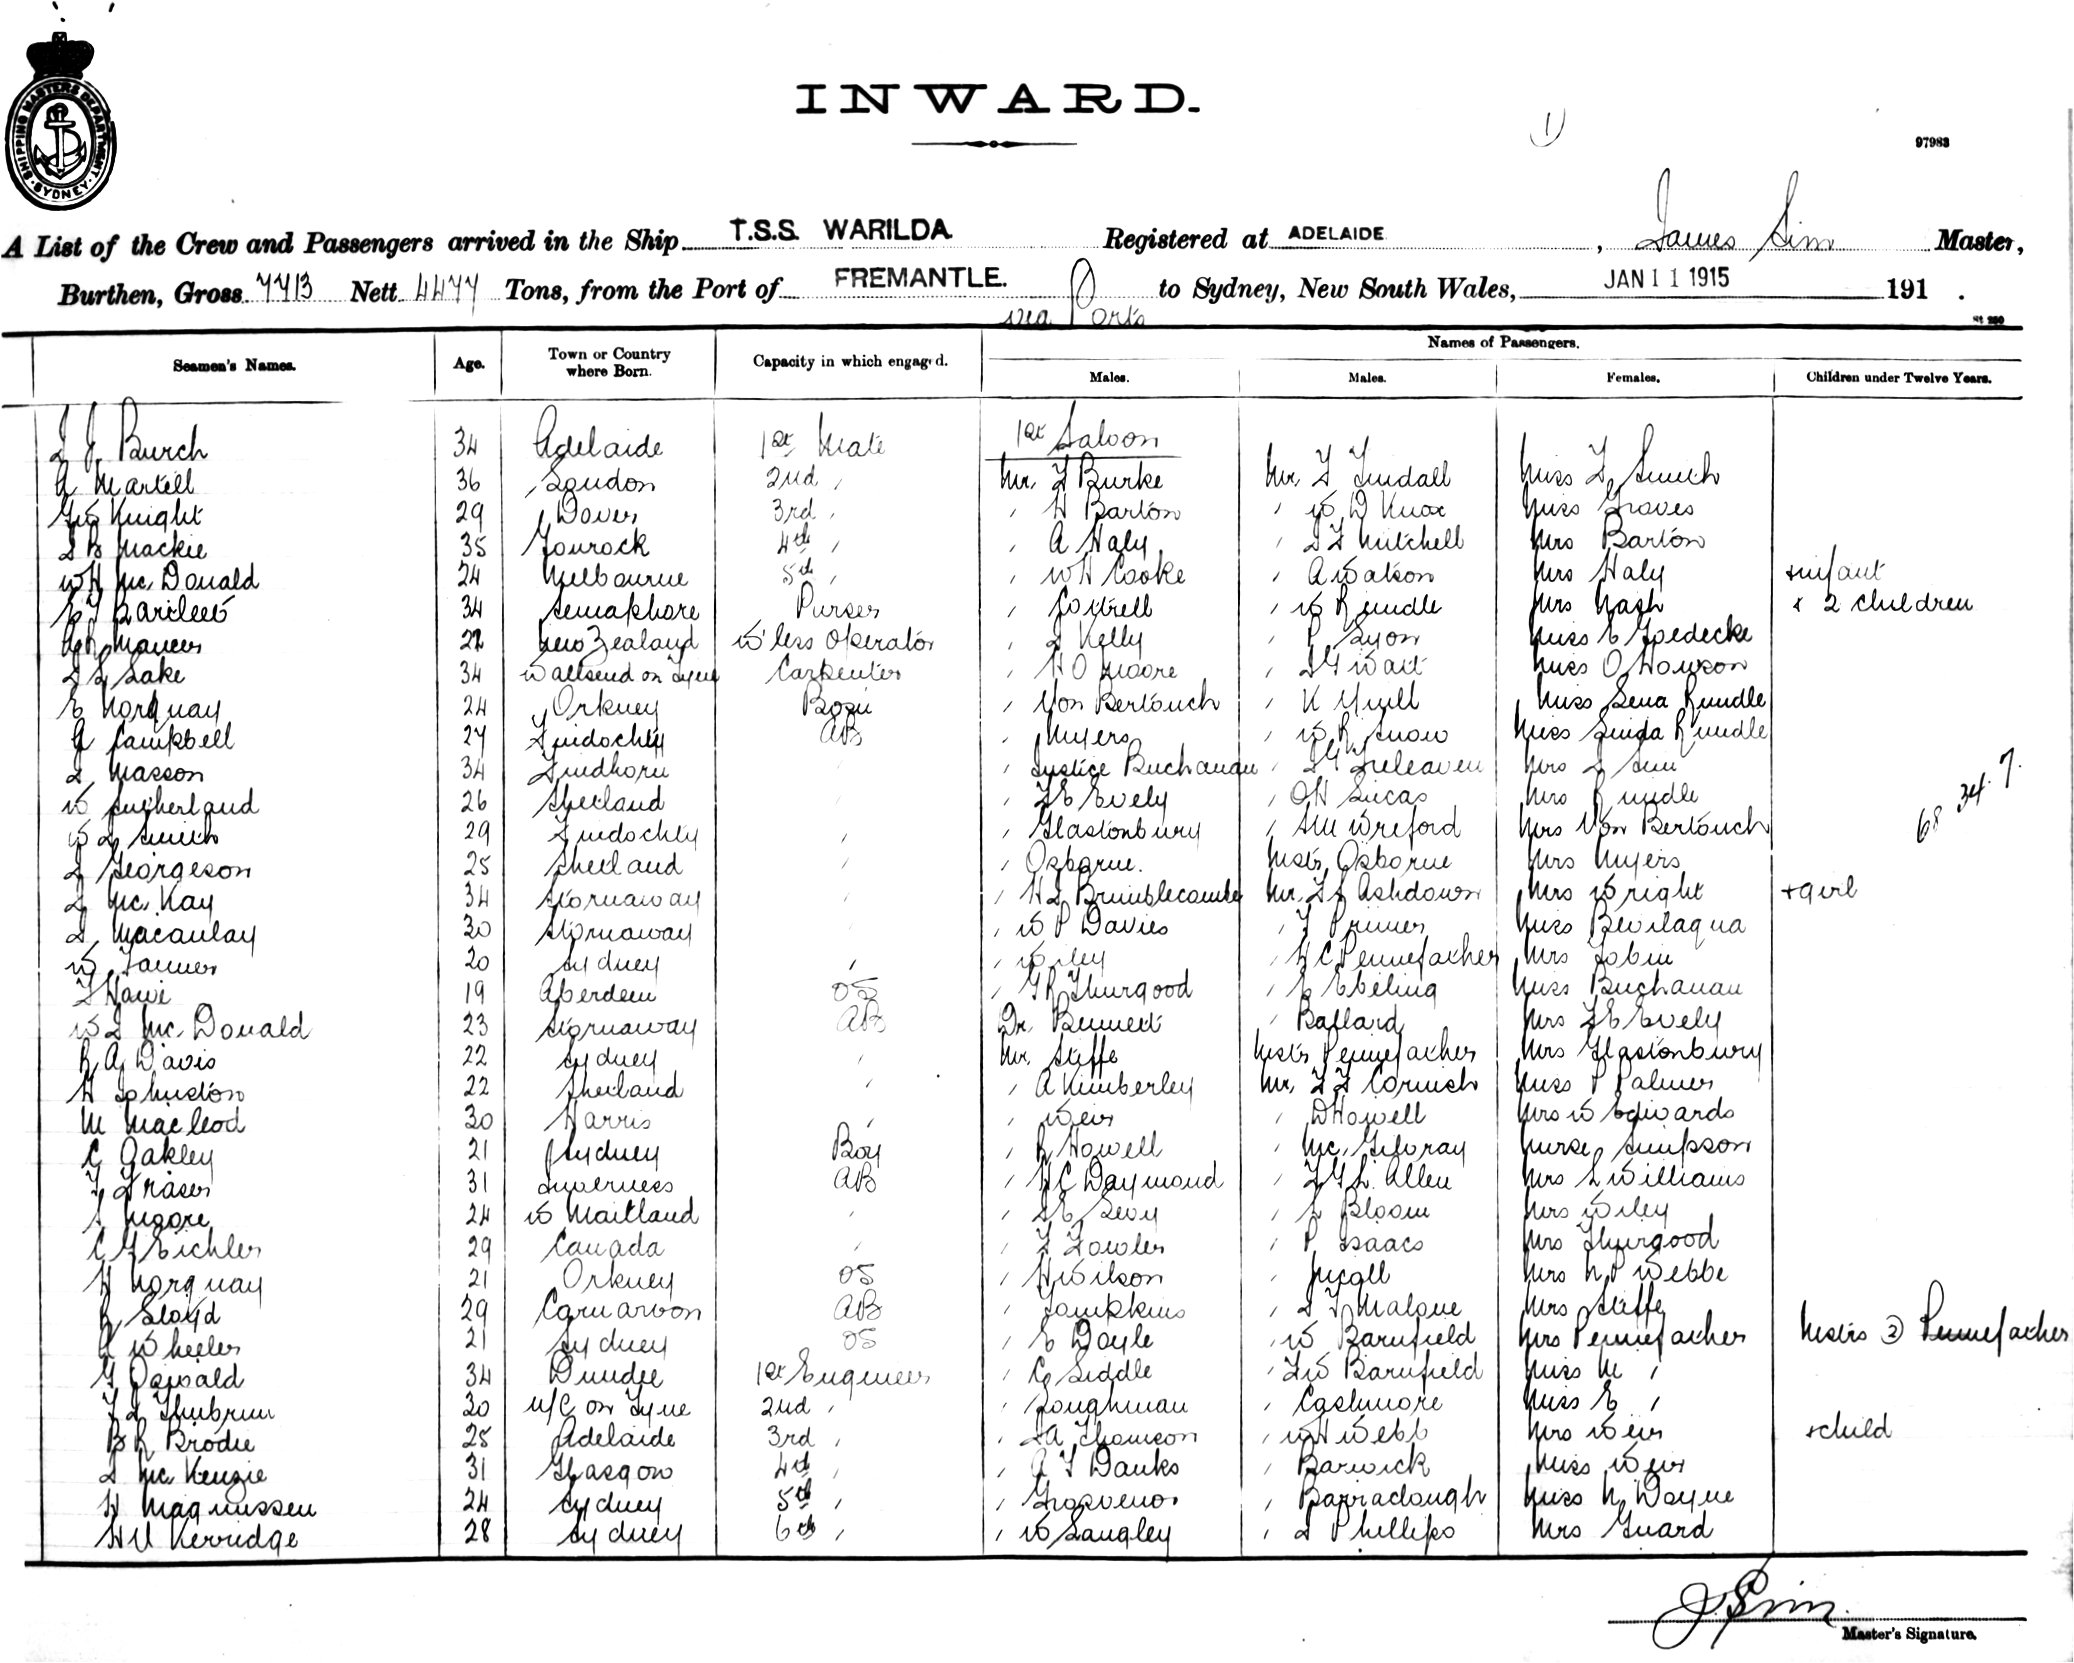 SHIPPING MASTERS DEPARTMENT · SYDNEY ·
INWARD.
1
97983
A List of the Crew and Passengers arrived in the Ship T.S.S. WARILDA Registered at ADELAIDE, James Sim Master,
Burthen, Gross 7713 Nett 4477 Tons, from the Port of FREMANTLE. to Sydney, New South Wales, JAN 11 1915 191 .
via Ports
Seamen's Names. Age. Town or Country where Born. Capacity in which engaged. Names of Passengers.
Males. Males. Females. Children under Twelve Years.
Burch 34 Adelaide 1st Mate 1st Saloon
A Martell 36 London 2nd " Mr. F Burke Mr. F Tindall Miss Smith
Knight 29 Dover 3rd " " H Barton " W D Knox Miss Graves
Mackie 35 Gourock 4th " " A Haly " Mitchell Mrs Barton
W H McDonald 24 Melbourne 5th " " W H Cooke " A Watson Mrs Haly + infant
Bartlett 34 Semaphore Purser " Cottrell " W Rundle Mrs Nash + 2 children
22 New Zealand W'less Operator " Kelly " P Lyon Miss E Goedecke
Lake 34 Wallsend on Tyne Carpenter " H O Moore " Wait Miss O Howson
E Norquay 24 Orkney Bosn " Von Bertouch " K Yuill Miss Lena Rundle
A Campbell 27 Findochty AB " Myers " W R Snow Miss Linda Rundle
Masson 34 Findhorn " " Justice Buchanan " Treleaven Mrs Sim
W Sutherland 26 Shetland " " F E Evely " O H Lucas Mrs Rundle
68 34 7.
W Smith 29 Findochty " " Glastonbury " Wreford Mrs Von Bertouch
Georgeson 25 Shetland " " Osborne. Mstr Osborne Mrs Myers
McKay 34 Stornaway " " Brimblecombe Mr. Ashdown Mrs Wright + girl
Macaulay 30 Stornaway " " W P Davies " Primer Miss Bevilaqua
W Tanner 20 Sydney " " Wiley " H C Pennefather Mrs Tobin
19 Aberdeen OS " G R Thurgood " E Ebeling Miss Buchanan
W McDonald 23 Stornaway AB Dr. Bennett " Ballard Mrs F E Evely
R A Davis 22 Sydney " Mr. Steffe Mstr Pennefather Mrs Glastonbury
H Johnston 22 Shetland " " A Kimberley Mr. Cornish Miss P Palmer
M Macleod 30 Harris " " Weir " D Howell Mrs W Edwards
C Oakley 21 Sydney Boy " R Howell " McGilvray Nurse Simpson
Fraser 31 Inverness AB " H C Daymond " Allen Mrs L Williams
Moore 24 W Maitland " " Levy " L Bloom Mrs Wiley
C Eichler 29 Canada " " F Fowler " P Isaacs Mrs Thurgood
H Norquay 21 Orkney OS " H Wilson " Mrs N P Webbe
R Lloyd 29 Carnarvon AB " Tompkins " Malone Mrs Steffe
A Wheeler 21 Sydney OS " E Doyle " W Barnfield Mrs Pennefather Mstrs 2 Pennefather
G Oswald 34 Dundee 1st Engineer " C Liddle " Barnfield Miss M "
Thubrun 30 N/C on Tyne 2nd " " Loughman " Cashmore Miss E "
B R Brodie 25 Adelaide 3rd " " Thomson " W H Webb Mrs Weir + child
McKenzie 31 Glasgow 4th " " Danks " Barwick Miss Weir
H Magnussen 24 Sydney 5th " " Grosvenor " Barraclough Miss N Dayne
Kerridge 28 Sydney 6th " " W Langley " Phillips Mrs Guard
J. Sim.
Master's Signature.